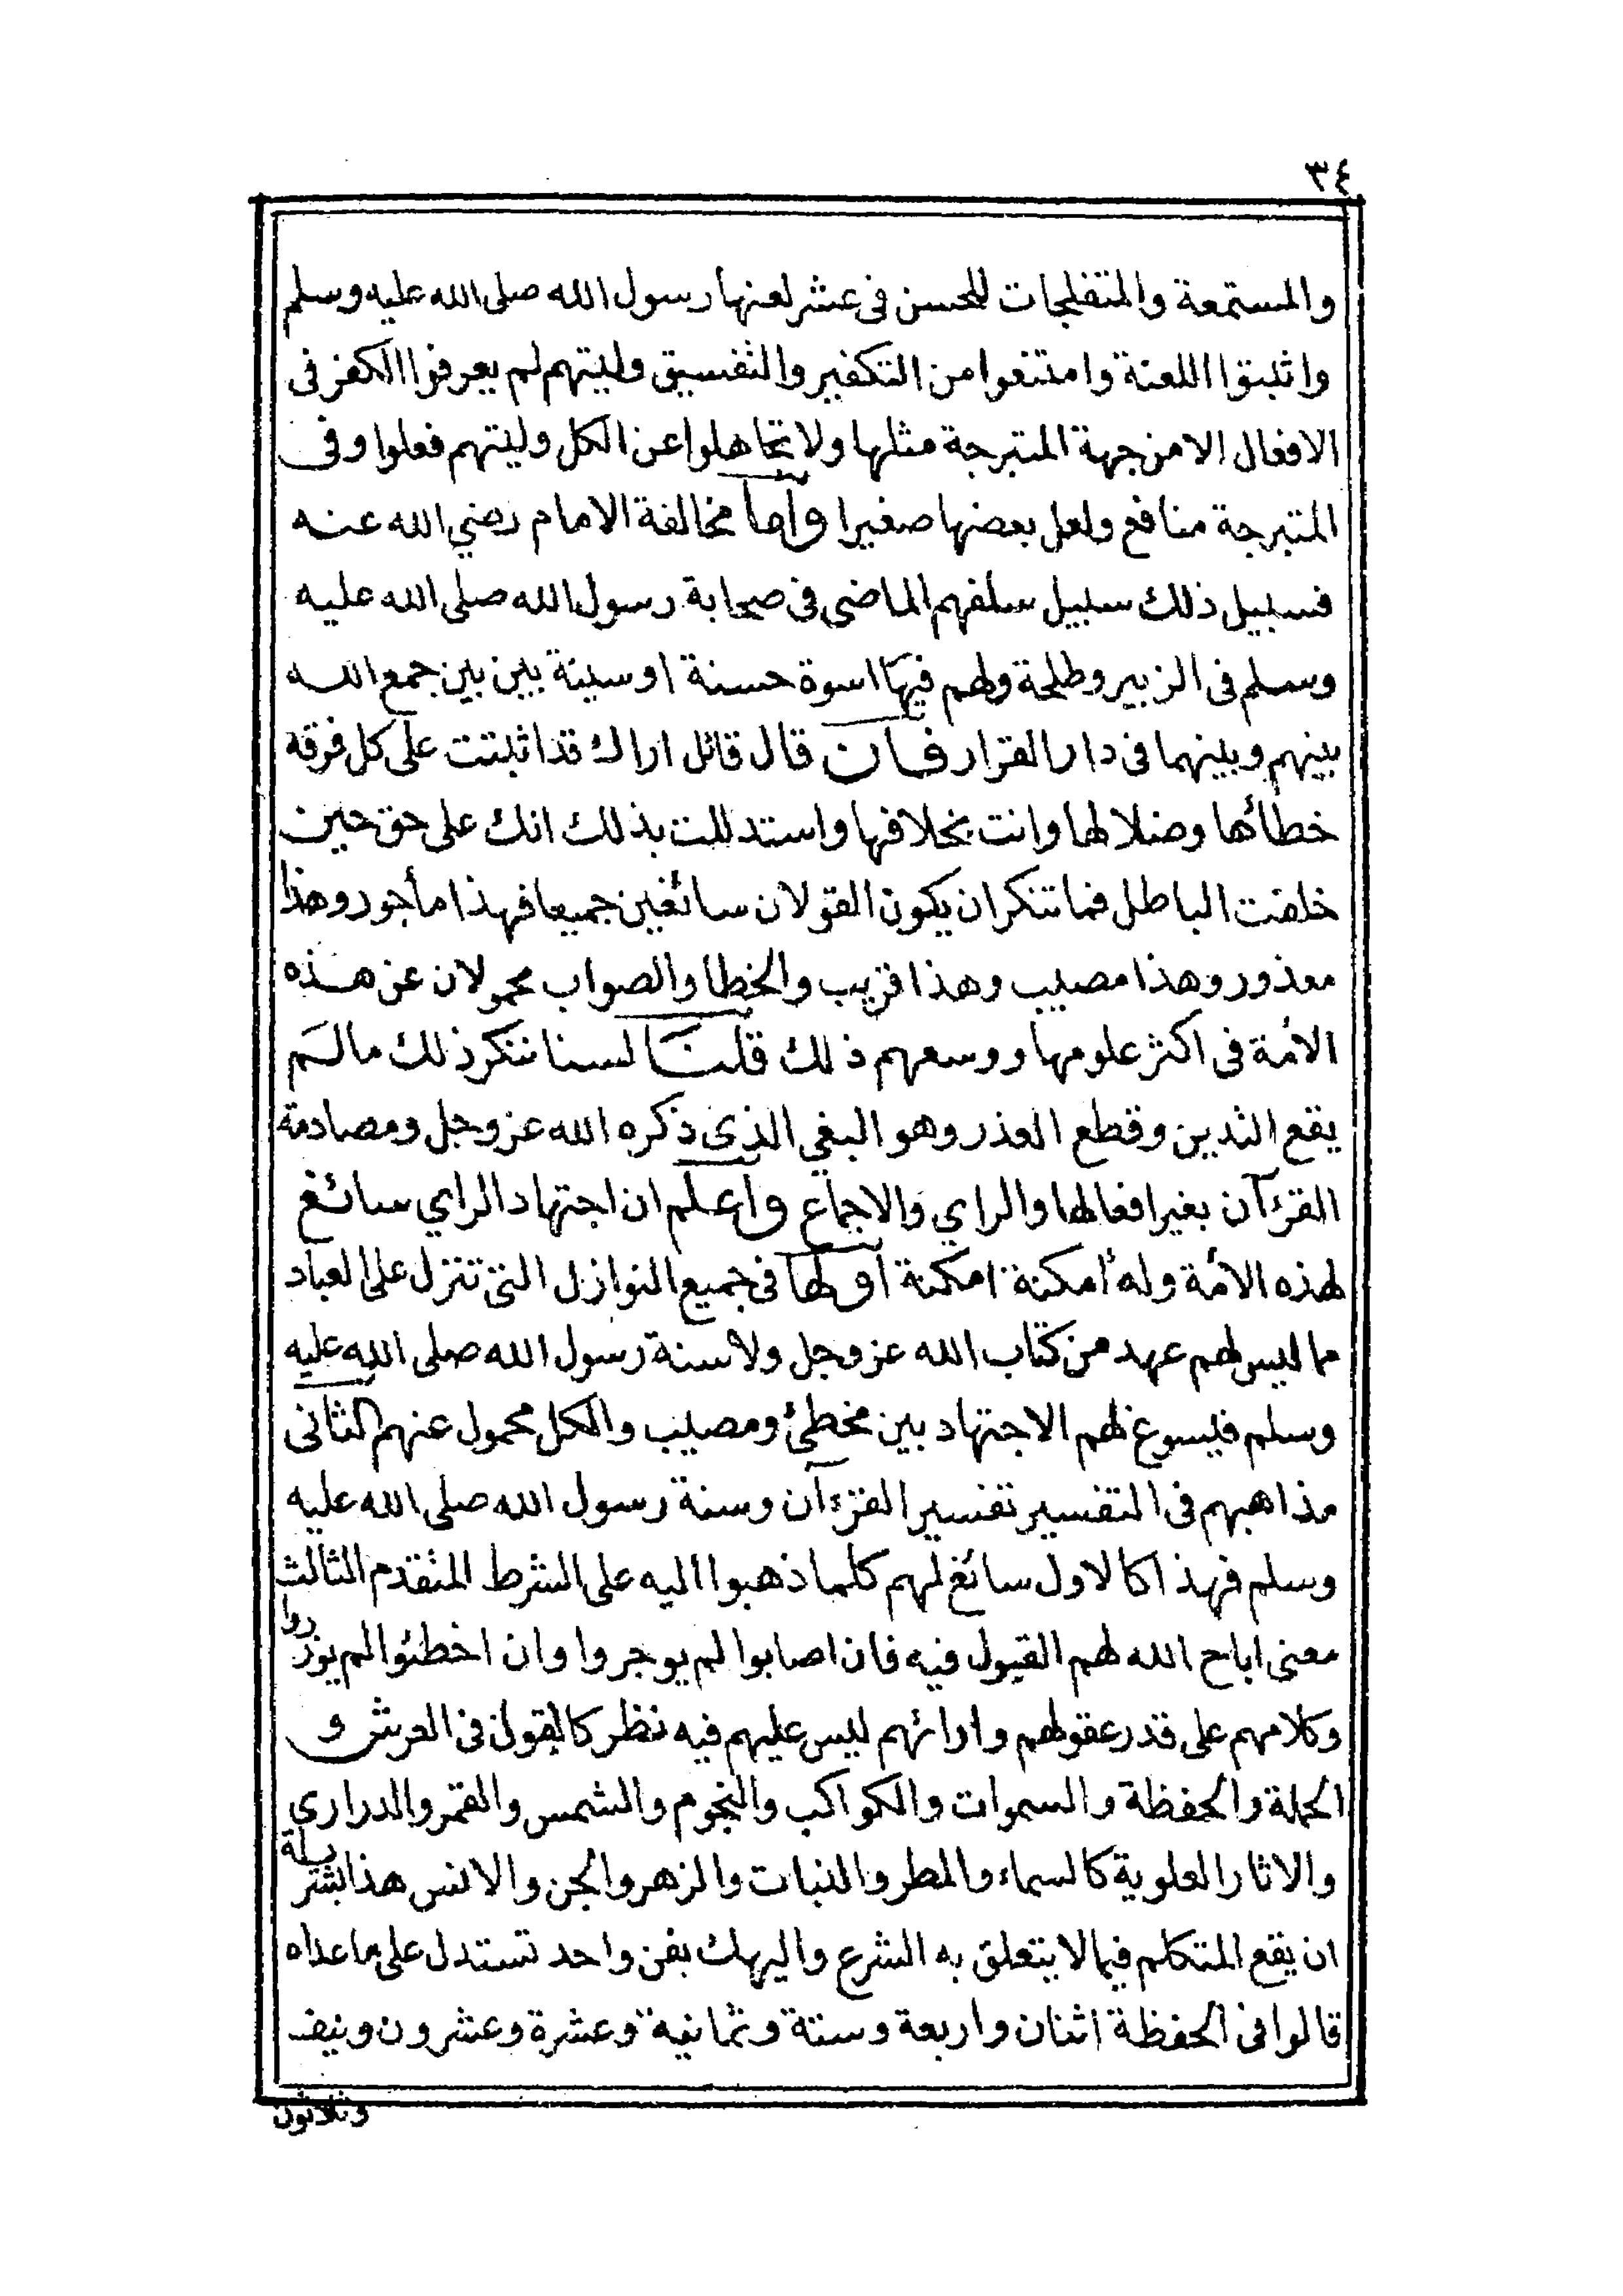 ٣٤
والمستمعة والمتفلجات للحسن فى عشر لعنها رسول الله صلى الله عليه وسلم
واثبتوا اللعنة وامتنعوا من التكفير والتفسيق وليتهم لم يعرفوا الكفر فى
الافعال الا من جهة المتبرجة مثلها ولا تجاهلوا عن الكل وليتهم فعلوا وفى
المتبرجة منافع ولعل بعضها صغيرا وأما مخالفة الامام رضي الله عنه
فسبيل ذلك سبيل سلفهم الماضى فى صحابة رسول الله صلى الله عليه
وسلم فى الزبير وطلحة ولهم فيها اسوة حسنة او سيئة بين بين جمع الله
بينهم وبينهما فى دار القرار فان قال قائل اراك قد اثبتت على كل فرقة
خطأها وضلالها وانت بخلافها واستدللت بذلك انك على حق حين
خلفت الباطل فما تنكر ان يكون القولان سائغين جميعا فهذا مأجور وهذا
معذور وهذا مصيب وهذا قريب والخطا والصواب محمولان عن هذه
الأمة فى اكثر علومها ووسعهم ذلك قلنا لسنا ننكر ذلك مالم
يقع التدين وقطع العذر وهو البغي الذى ذكره الله عز وجل ومصادمة
القرءآن بغير افعالها والراي والاجماع واعلم ان اجتهاد الراي سائغ
لهذه الأمة وله أمكنة امكنة اولها فى جميع النوازل التى تنزل على العباد
مما ليس لهم عهد من كتاب الله عز وجل ولا سنة رسول الله صلى الله عليه
وسلم فيسوغ لهم الاجتهاد بين مخطئ ومصيب والكل محمول عنهم الثانى
مذاهبهم فى التفسير تفسير القرءآن وسنة رسول الله صلى الله عليه
وسلم فهذا كالاول سائغ لهم كلما ذهبوا اليه على الشرط المتقدم الثالث
معنى اباح الله لهم القبول فيه فان اصابوا لم يوجروا وان اخطئوا لم يوزروا
وكلامهم على قدر عقولهم وارائهم ليس عليهم فيه نظر كالقول فى العرش و
الحملة والحفظة والسموات والكواكب والنجوم والشمس والقمر والدراري
والاثار العلوية كالسماء والمطر والنبات والزهر والجن والانس هذا بشريطة
ان يقع المتكلم فيما لا يتعلق به الشرع واليهك بفن واحد تستدل على ما عداه
قالوا فى الحفظة اثنان واربعة وستة وثمانية وعشرة وعشرون ونيف
وثلاثون